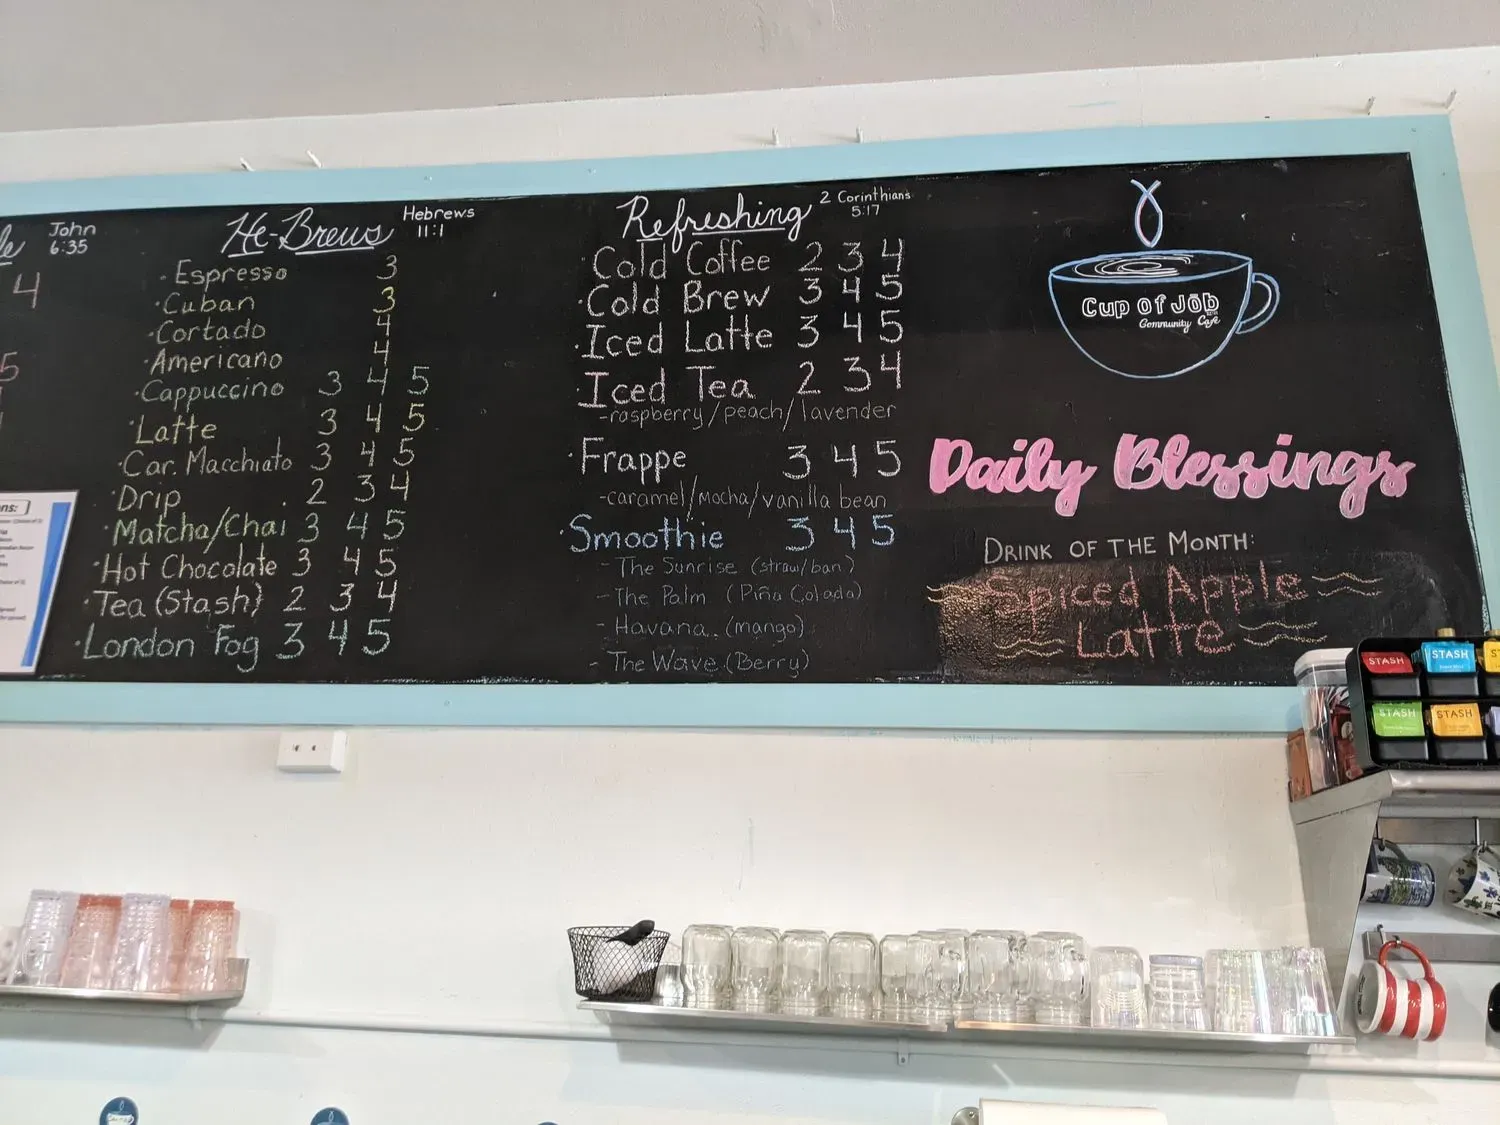 John
6:35
4
5
He-Brews
Hebrews
11:1
· Espresso 3
· Cuban 3
· Cortado 4
· Americano 4
· Cappuccino 3 4 5
· Latte 3 4 5
· Car. Macchiato 3 4 5
· Drip 2 3 4
· Matcha/Chai 3 4 5
· Hot Chocolate 3 4 5
· Tea (Stash) 2 3 4
· London Fog 3 4 5
Refreshing
2 Corinthians
5:17
· Cold Coffee 2 3 4
· Cold Brew 3 4 5
· Iced Latte 3 4 5
· Iced Tea 2 3 4
- raspberry/peach/lavender
· Frappe 3 4 5
- caramel/mocha/vanilla bean
· Smoothie 3 4 5
- The Sunrise (straw/ban)
- The Palm (Piña Colada)
- Havana (mango)
- The Wave (Berry)
Cup Of Jōb
Community Cafe
Daily Blessings
DRINK OF THE MONTH:
Spiced Apple
Latte
STASH STASH
STASH STASH